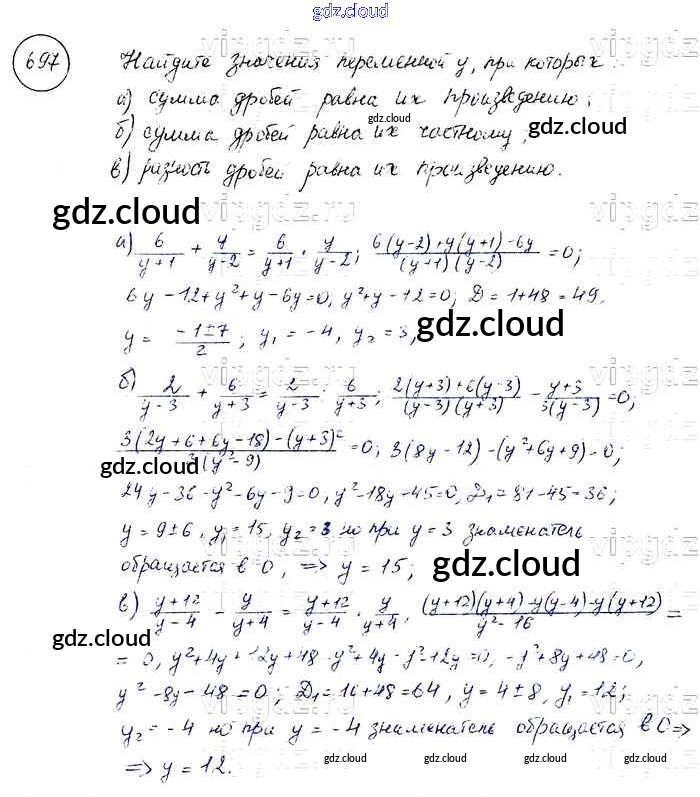 gdz.cloud
697 Найдите значения переменной y, при которых:
а) сумма дробей равна их произведению;
б) сумма дробей равна их частному;
в) разность дробей равна их произведению.
а) 6/(y+1) + y/(y-2) = 6/(y+1) · y/(y-2); (6(y-2)+y(y+1)-6y)/((y+1)(y-2)) = 0;
6y-12+y²+y-6y=0, y²+y-12=0; D=1+48=49,
y = (-1±7)/2; y₁=-4, y₂=3,
б) 2/(y-3) + 6/(y+3) = 2/(y-3) : 6/(y+3); (2(y+3)+6(y-3))/((y-3)(y+3)) - (y+3)/(3(y-3)) = 0,
(3(2y+6+6y-18)-(y+3)²)/(3(y²-9)) = 0; 3(8y-12)-(y²+6y+9)=0;
24y-36-y²-6y-9=0, y²-18y+45=0, D₁=81-45=36;
y=9±6, y₁=15, y₂=3 но при y=3 знаменатель
обращается в 0, => y=15;
в) (y+12)/(y-4) - y/(y+4) = (y+12)/(y-4) · y/(y+4), ((y+12)(y+4)-y(y-4)-y(y+12))/(y²-16) =
= 0, y²+4y+12y+48-y²+4y-y²-12y=0, -y²+8y+48=0,
y²-8y-48=0; D₁=16+48=64, y=4±8, y₁=12;
y₂=-4 но при y=-4 знаменатель обращается в 0 =>
=> y=12.